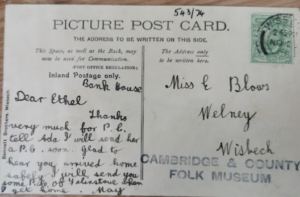 543/74
PICTURE POST CARD.
THE ADDRESS TO BE WRITTEN ON THIS SIDE.
This Space, as well as the Back, may
now be used for Communication.
(POST OFFICE REGULATION.)
Inland Postage only.
The Address only
to be written here.
Bank House
Dear Ethel
Thanks
very much for P.C.
tell Ada I will send her
a P.G. soon. Glad to
hear you arrived home
safely I will send you
some P. of Palestine when
I get home. May
Miss E Blows
Welney
Wisbech
CAMBRIDGE & COUNTY
FOLK MUSEUM